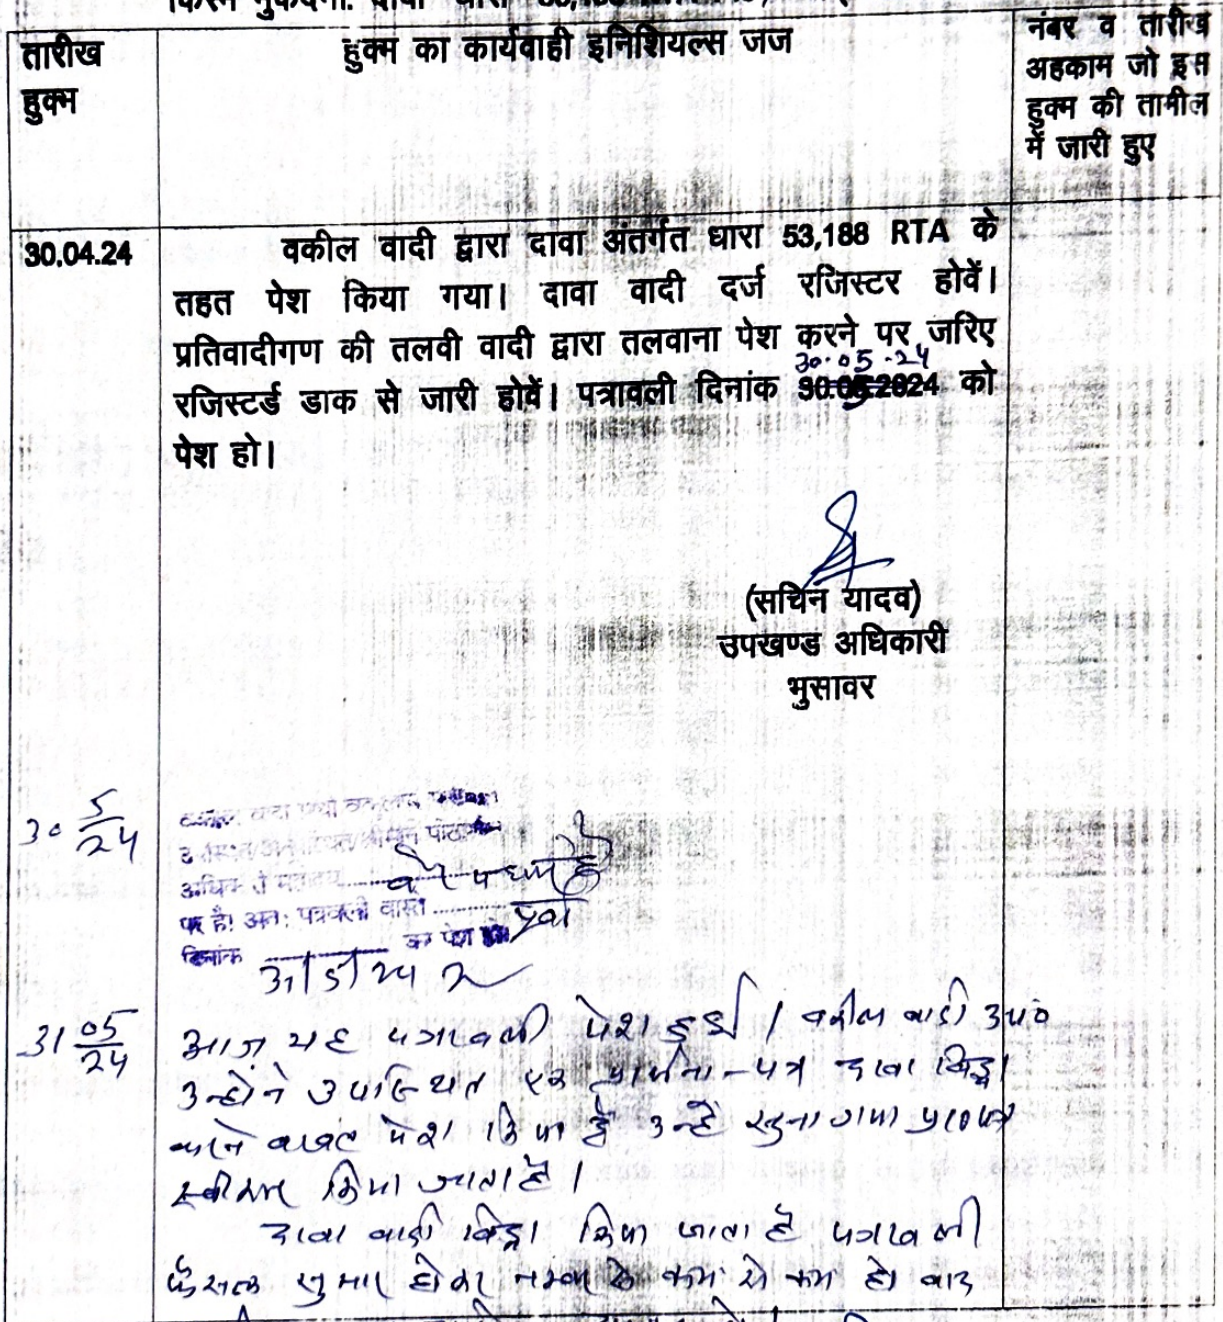 तारीख हुक्म
हुक्म का कार्यवाही इनिशियल्स जज
नंबर व तारीख
अहकाम जो इस
हुक्म की तामील
में जारी हुए
30.04.24
वकील वादी द्वारा दावा अंतर्गत धारा 53,188 RTA के
तहत पेश किया गया। दावा वादी दर्ज रजिस्टर होवें।
प्रतिवादीगण की तलवी वादी द्वारा तलवाना पेश करने पर जरिए
30.05.24
रजिस्टर्ड डाक से जारी होवें। पत्रावली दिनांक 30.05.2024 को
पेश हो।
(सचिन यादव)
उपखण्ड अधिकारी
भुसावर
30 5/24
पर है। अतः पत्रावली वास्ते
दिनांक को पेश हो
31 05/24
आज यह पत्रावली पेश हुई। वकील वादी उप०
उन्होंने उपस्थित एक प्रार्थना-पत्र दावा विड्रा
करने बाबत पेश किया है उन्हें सुना गया प्रा०पत्र
स्वीकार किया जाता है।
दावा वादी विड्रा किया जाता है पत्रावली
फैसल सुमार होकर नम्बर से कम हो बाद